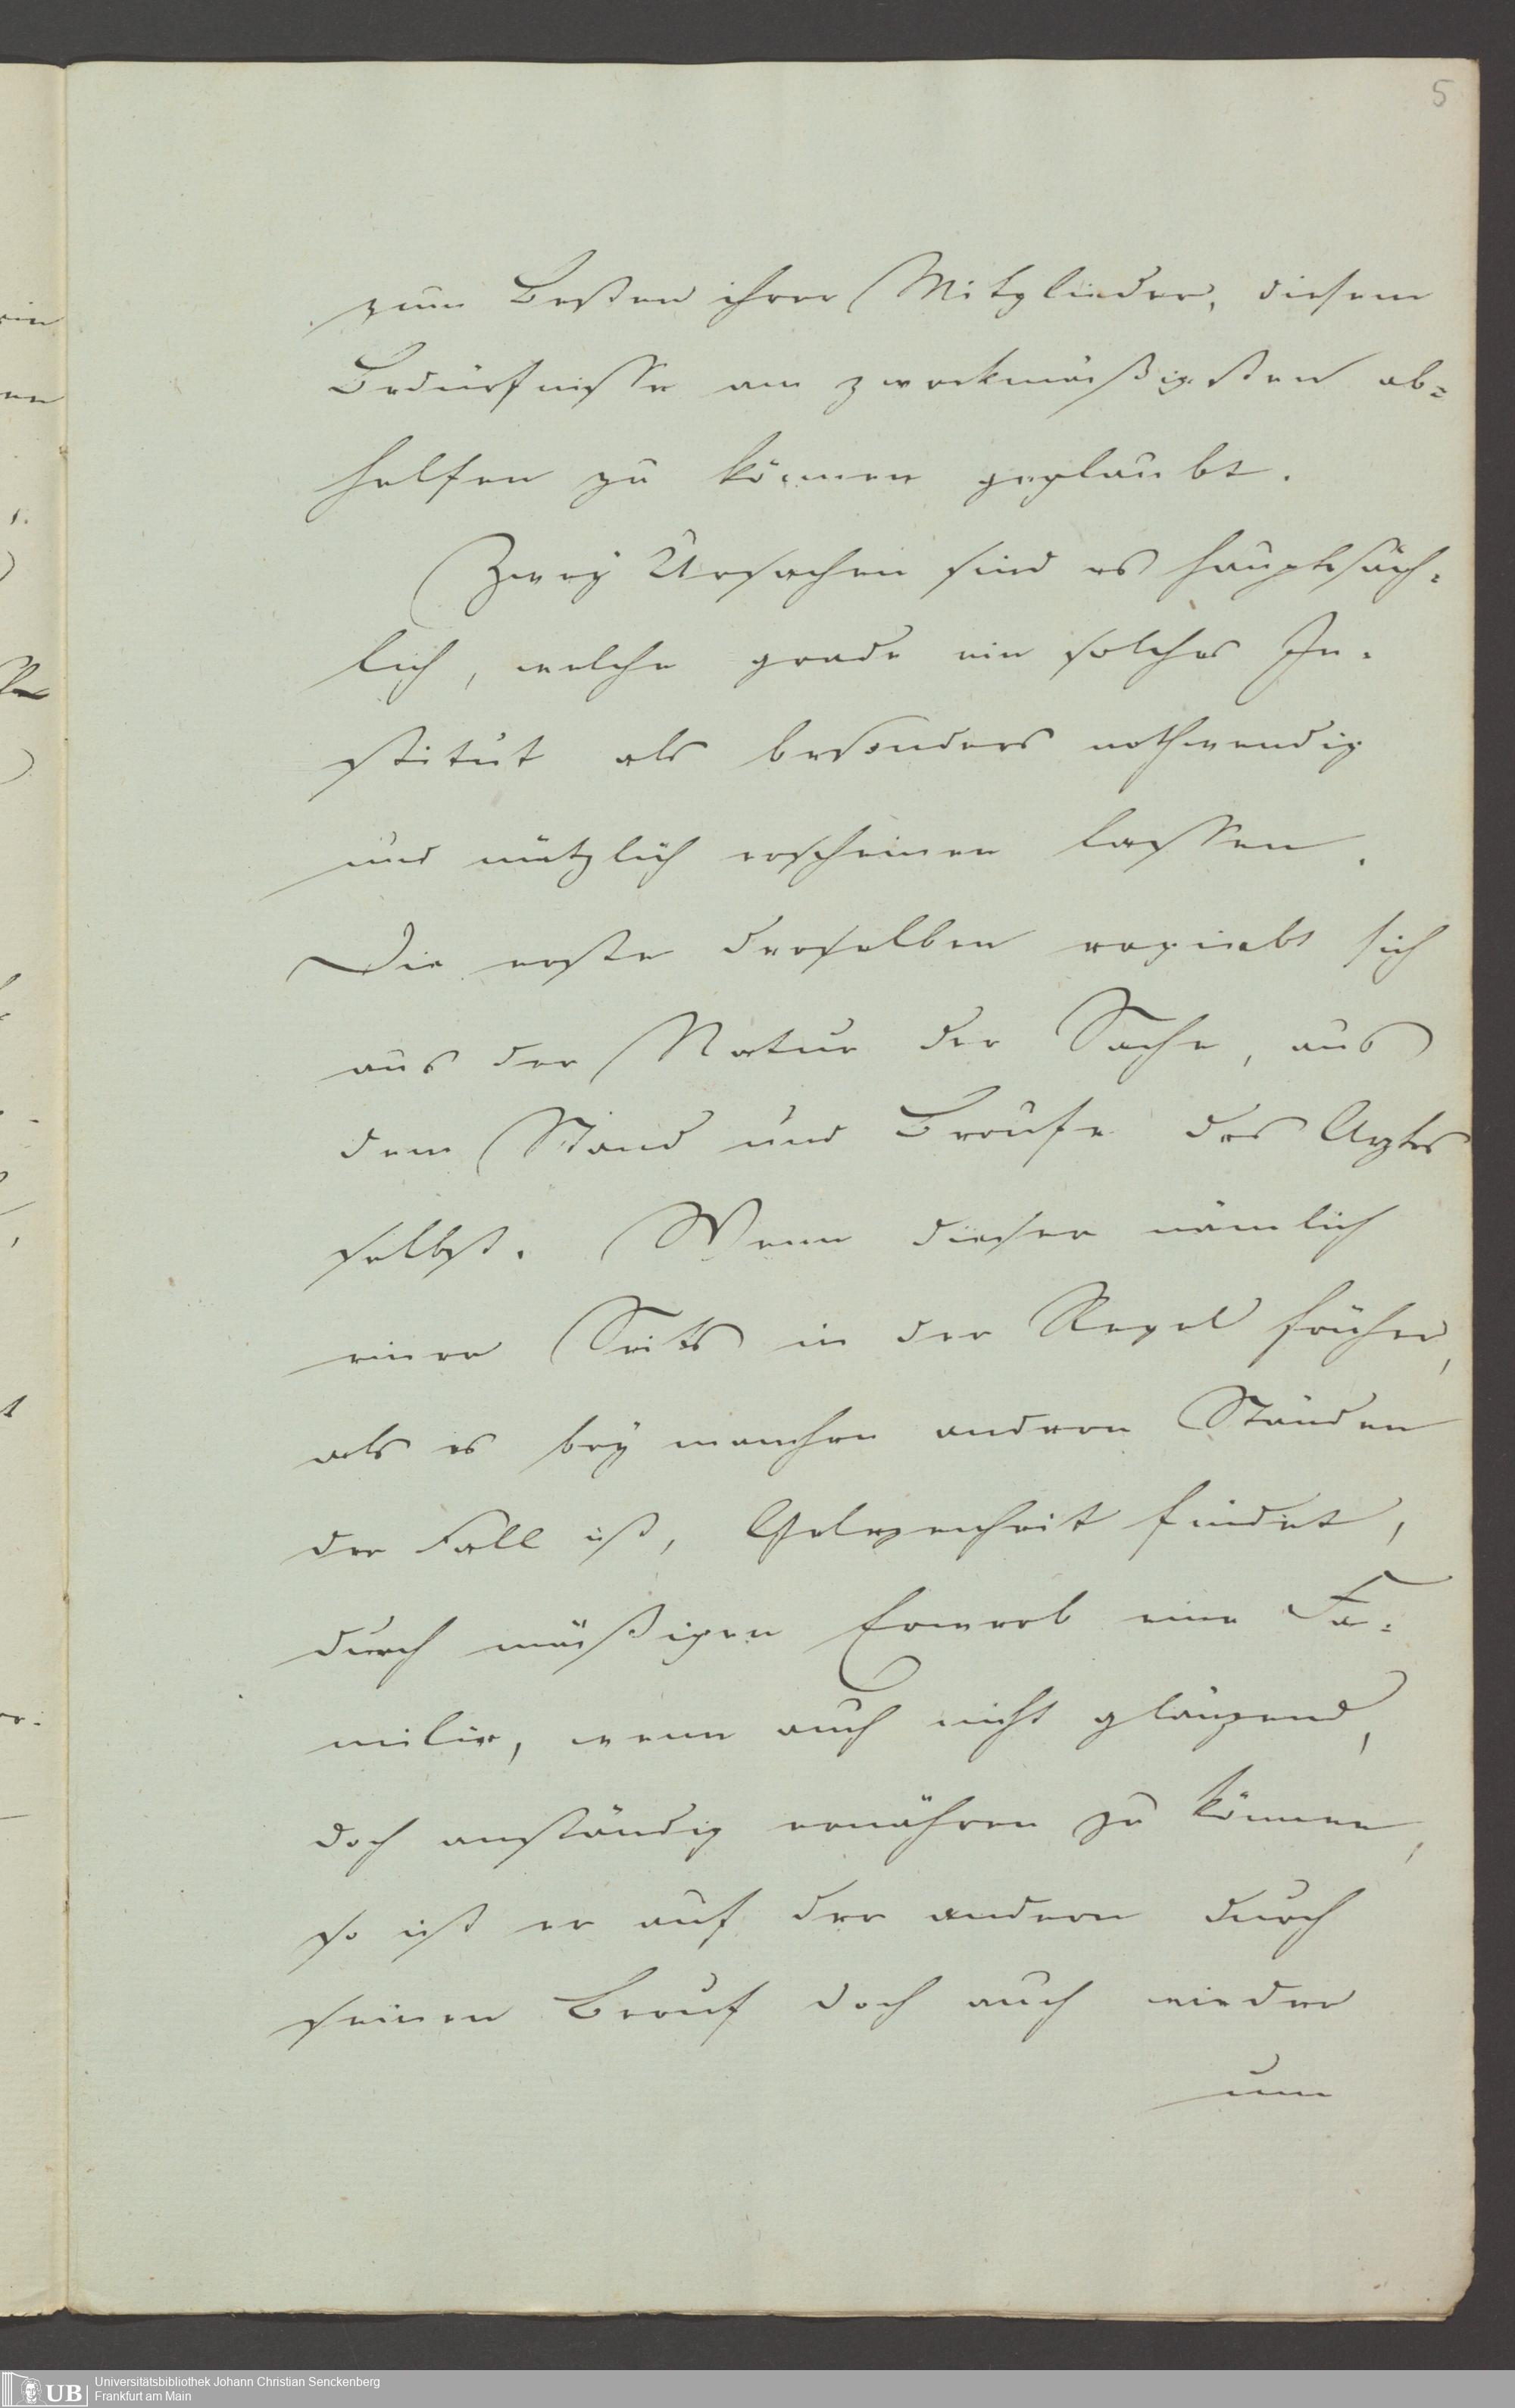 5
zum Besten ihrer Mitglieder, diesem
Bedürfnisse am zweckmäßigsten ab=
helfen zu können geglaubt.
Zwey Ursachen sind es hauptsäch=
lich, welche grade ein solches In=
stitut als besonders nothwendig
und nützlich erscheinen lassen.
Die erste derselben ergiebt sich
aus der Natur der Sache, aus
dem Stand und Berufe des Arztes
selbst. Wenn dieser nämlich
einer Seits in der Regel früher,
als es bey manchen andern Ständen
der Fall ist, Gelegenheit findet,
durch mäßigen Erwerb eine Fa=
milie, wenn auch nicht glänzend,
doch anständig ernähren zu können,
so ist er auf der andern durch
seinen Beruf doch auch wieder
um
UB
Universitätsbibliothek Johann Christian Senckenberg
Frankfurt am Main